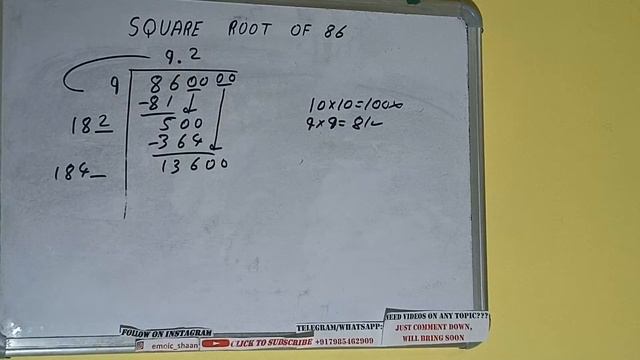 SQUARE ROOT OF 86
9.2
9 860000
-81
182 500
-364
184_ 13600
10×10=100×
9×9=81✓
FOLLOW ON INSTAGRAM
emoic_shaan
CLICK TO SUBSCRIBE
TELEGRAM/WHATSAPP:
+917985462909
NEED VIDEOS ON ANY TOPIC???
JUST COMMENT DOWN,
WILL BRING SOON